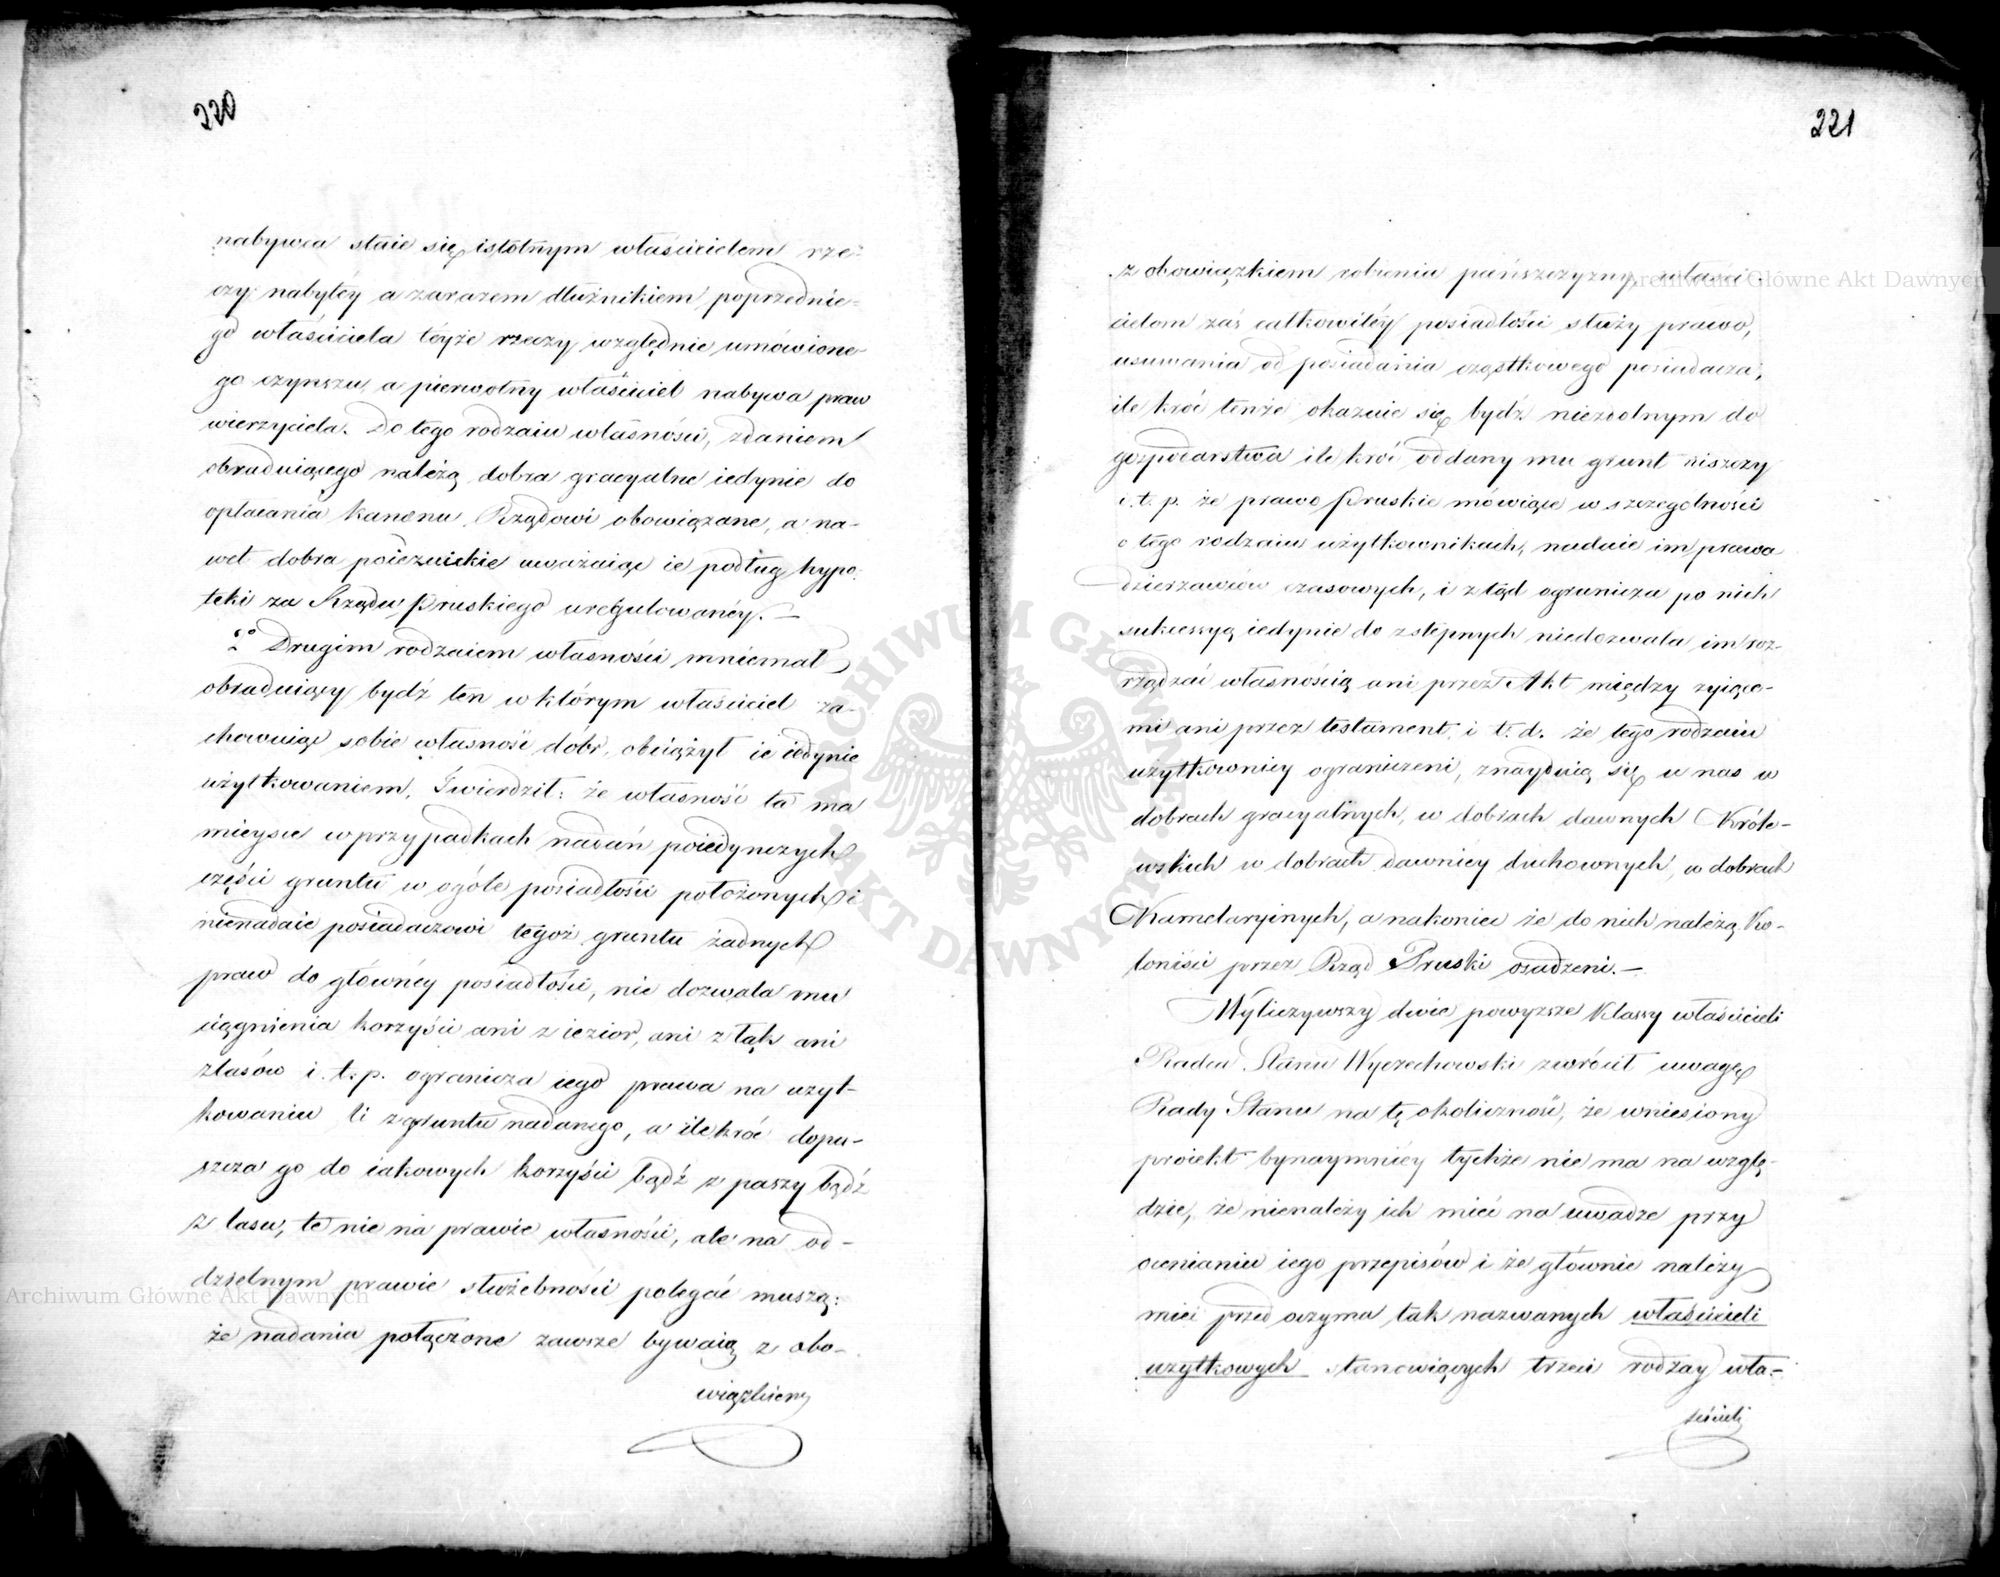 220
nabywca staie się istotnym właścicielem rze-
czy nabytéy a zarazem dłużnikiem poprzednie-
go właściciela téyże rzeczy względnie umówione-
go czynszu a pierwotny właściciel nabywa praw
wierzyciela. Do tego rodzaiu własności, zdaniem
obraduiącego należą dobra gracyalne iedynie do
opłacania kanonu Rządowi obowiązane, a na-
wet dobra poiezuickie uważaiąc ie podług hypo-
teki za Rządu Pruskiego uregulowanéy. —
2° Drugim rodzaiem własności mniemał
obraduiący bydź ten w którym właściciel za-
chowuiąc sobie własność dóbr, obciążył ie iedynie
użytkowaniem. Twierdził: że własność ta ma
mieysce w przypadkach nadań poiedynczych
części gruntu w ogóle posiadłości położonych i
nienadaie posiadaczowi tegoż gruntu żadnych
praw do głównéy posiadłości, nie dozwala mu
ciągnienia korzyści ani z iezior, ani z łąk ani
z lasów i. t. p. ogranicza iego prawa na użyt-
kowaniu li z gruntu nadanego, a ilekroć dopu-
szcza go do iakowych korzyści bądź z paszy bądź
z lasu, te nie na prawie własności, ale na od-
dzielnym prawie służebności polegać muszą:
że nadania połączone zawsze bywaią z obo-
wiązkiem
221
z obowiązkiem robienia pańszczyzny właści-
cielom zaś całkowitéy posiadłości służy prawo,
usuwania od posiadania cząstkowego posiadacza,
ile kroć tenże okazuie się bydź niezdolnym do
gospodarstwa ile kroć oddany mu grunt niszczy
i. t. p. że prawo Pruskie mówiąc w szczególności
o tego rodzaiu użytkownikach, nadaie im prawa
dzierzawców czasowych, i z tąd ogranicza po nich
sukcessyą iedynie do zstępnych niedozwala im roz-
rządzać własnością ani przez Akt między żyiące-
mi ani przez testament i t. d. że tego rodzaiu
użytkownicy ograniczeni, znayduią się u nas w
dobrach gracyalnych, w dobrach dawnych Króle-
wskich w dobrach dawniéy duchownych, w dobrach
Kameralnych, a nakoniec że do nich należą Ko-
loniści przez Rząd Pruski osadzeni. —
Wyliczywszy dwie powyższe Klassy właścicieli
Radca Stanu Wyczechowski zwrócił uwagę
Rady Stanu na tę okoliczność, że wniesiony
proiekt bynaymniéy tychże nie ma na wzglę-
dzie, że nienależy ich mieć na uwadze przy
ocenianiu iego przepisów i że głównie należy
mieć przed oczyma tak nazwanych właścicieli
użytkowych stanowiących trzeci rodzay wła-
ścicieli
Archiwum Główne Akt Dawnych
Archiwum Główne Akt Dawnych
ARCHIWUM GŁÓWNE AKT DAWNYCH